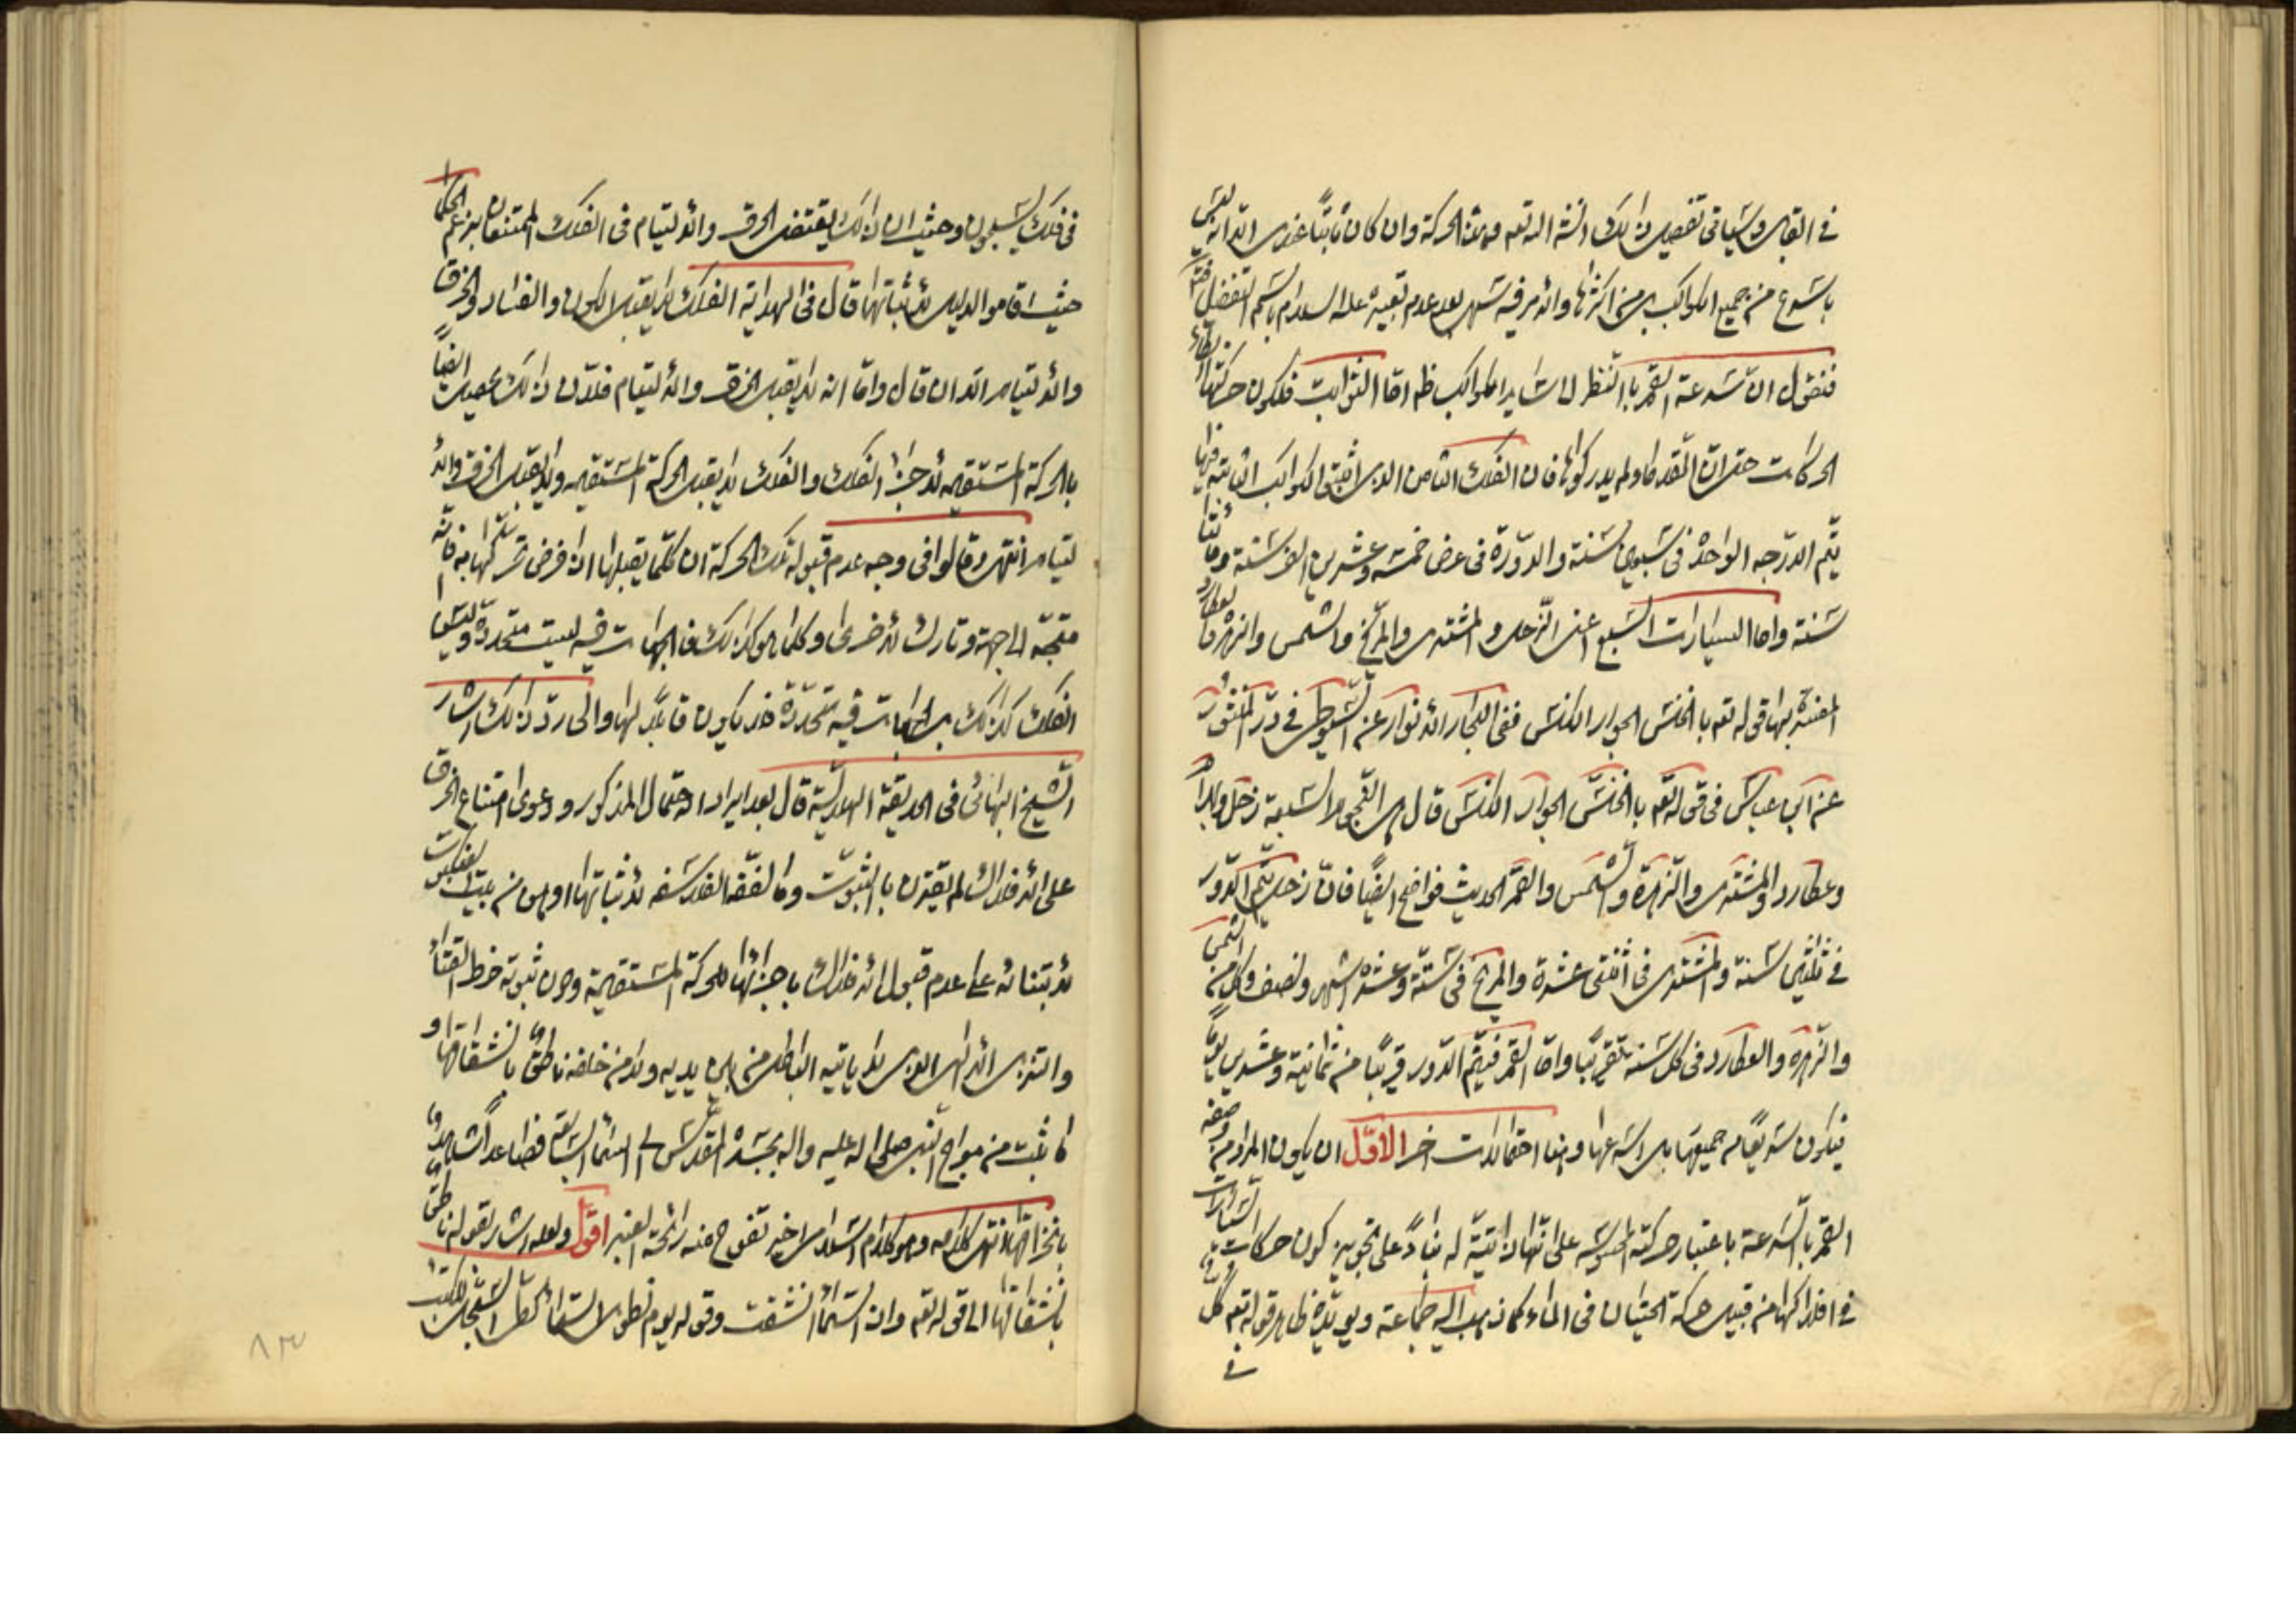 في القابل وسياتي تفصيل ذلك انشه الله تعه وهذه الحركة وان كان ثابتًا عندى الا انه ليس
باسرع من جميع الكواكب بل من اكثرها والامر فيه سهل بعد عدم تعبيره عليه السلام باسم التفضيل
فنقول ان سرعة القمر بالنظر الى ساير الكواكب ظ اما الثوابت فلكون حركتها ابطاء
الحركات حتى ان القدماء لم يدركوها فان الفلك الثامن الذى اثبتوا الكواكب الثابتة فيها
يتم الدرجه الواحدة في سبعين سنة والدورة في عرض خمسة وعشرين الف سنة ومائتا
سنة واما السيارات السبع اعنى الزحل والمشترى والمريخ والشمس والزهرة والعطارد
المفسرة بها قوله تعه بالخنس الجوار الكنس ففى البحار الانوار عن السيوطى في در المنثور
عن ابن عباس في قوله تعه بالخنس الجوار الكنس قال هى النجوم السبعة زحل وبهرام
وعطارد والمشترى والزهرة والشمس والقمر الحديث فواضح ايضًا فان زحل يتم الدور
في ثلثين سنة والمشترى في اثنتى عشرة والمريخ في سنة وعشرة اشهر ونصف وكل من الشمس
والزهرة والعطارد في كل سنة تقريبًا واما القمر فيتم الدور قريبًا من ثمانية وعشرين يومًا
فيكون سريعًا من جميعها بل اسرعها وهنا احتمالات اخر الاوّل ان يكون المراد من وصفه
القمر بالسرعة باعتبار حركته المحسوسة على انها ذاتية له بناءً على تجويز كون حركات السيارات
في افلاكها من قبيل حركة الحيتان في الماء كما ذهب اليه جماعة ويويده ظاهر قوله تعه كل
في
في فلك يسبحون وحيث ان ذلك يقتضى الخرق والالتيام في الفلك الممتنعان بزعم الحكما
حيث اقاموا الدليل لاثباتها قال في الهداية الفلك لا يقبل الكون والفساد والخرق
والالتيام الى ان قال واما انه لا يقبل الخرق والالتيام فلان ذلك يحصل ايضًا
بالحركة المستقيمه لاجزاء الفلك والفلك لا يقبل الحركة المستقيمه ولا يقبل الخرق والا
لتيام انتهى وقالوا في وجه عدم قبوله تلك الحركة ان كلما يقبلها اذا فرض تحركها به فانه
متجه الى جهة وتارك لاخرى وكلما هو كذلك فالجهات فيه ليست متحددة وليس
الفلك كذلك بل الجهات فيه متحددة فلا يكون قابلا لها والى رد ذلك اشار
الشيخ البهائى في الحديقة الهلالية قال بعد ايراد الاحتمال المذكور ودعوى امتناع الخرق
على الافلاك لم يقترن بالثبوت وما لفقه الفلاسفه لاثباتها اوهن من بيت العنكبوت
لابتنائه على عدم قبول الافلاك باجزائها للحركة المستقيمة ودون ثبوته خرط القتاد
والتنزيل الالهى الذى لا ياتيه الباطل من بين يديه ولا من خلفه ناطق بانشقاقها و
ما ثبت من معراج النبى صلى الله عليه واله بجسده المقدس الى السماء السابعة فصاعدا شاهد
بانخراقها انتهى كلامه وهو كلام السلاس اخير تفوح منه رائحة العنبر اقول ولعله اشار بقوله ناطق
بانشقاقها الى قوله تعه واذا السماء انشقت وقوله يوم نطوى السماء كطى السجل للكتب